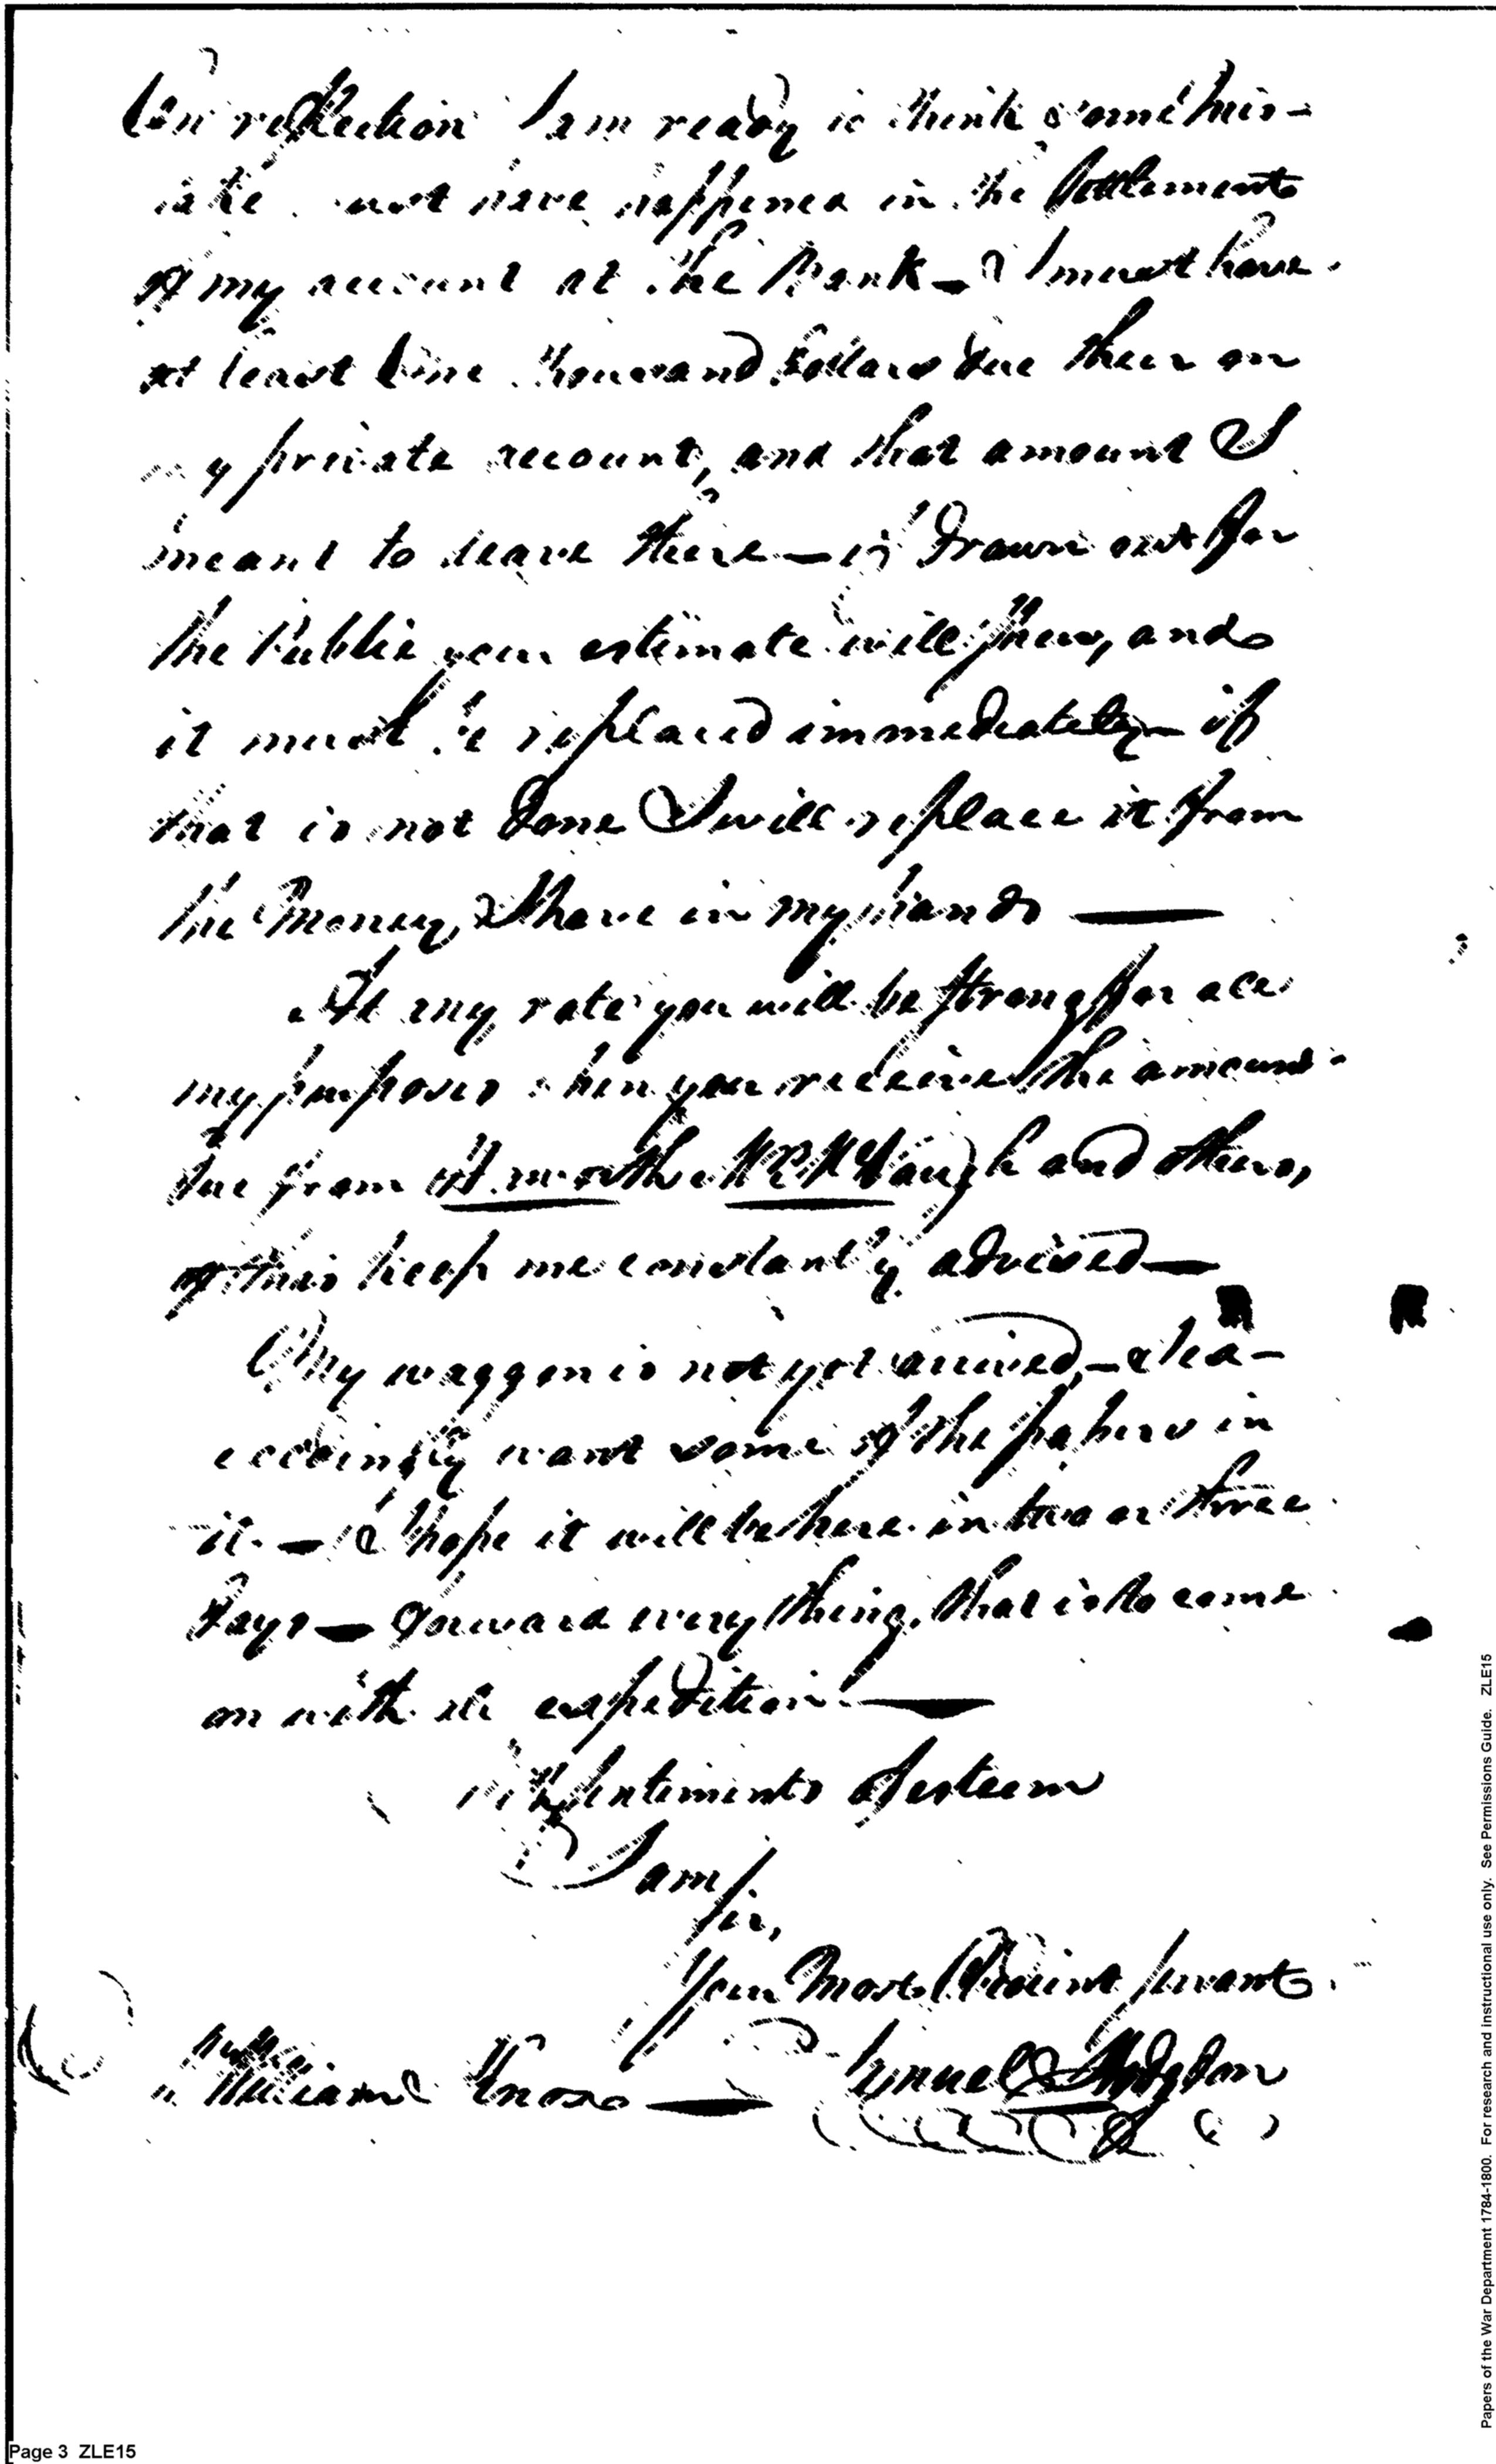 On reflection I am ready to think some mis-
take must have happened in the Settlements
of my account at the Bank — I must have
at least Nine thousand Dollars due there on
my private account, and that amount I
meant to leave there — if drawn out for
the Public your estimate will shew, and
it must be replaced immediately — if
that is not done I will replace it from
the Money I have in my hands —
At any rate you will be strong for all
my purposes when you receive the amount
due from and others,
of this keep me constantly advised —
My waggon is not yet arrived, — & I ex-
ceedingly want some of the papers in
it. — I hope it will be here in two or three
days — forward every thing, that is to come
on with all expedition —
With Sentiments of esteem
I am
Sir,
Your Most Obedient Servant
Samuel Hodgdon
William Knox —
Page 3 ZLE15
Papers of the War Department 1784-1800. For research and instructional use only. See Permissions Guide. ZLE15